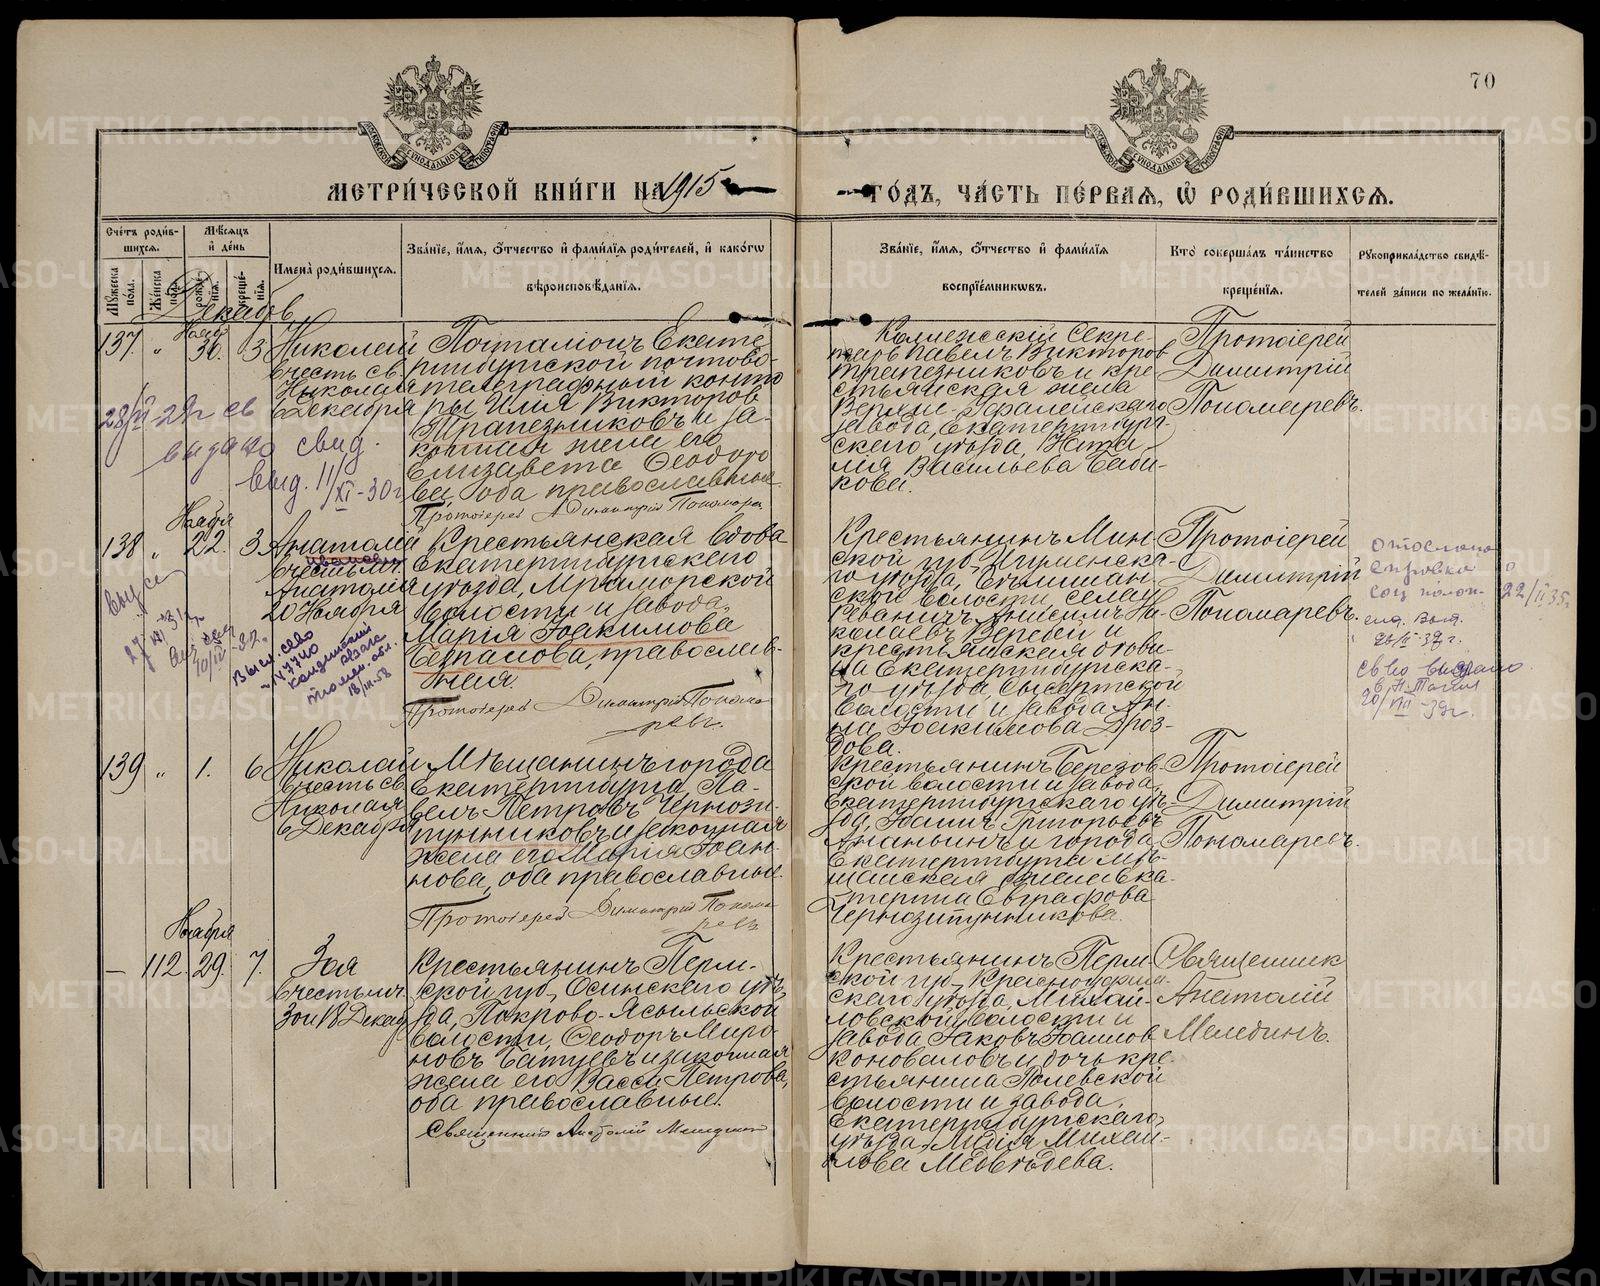 70
МЕТРИЧЕСКОЙ КНИГИ НА 1915
ГОДЪ, ЧАСТЬ ПЕРВАЯ, Ѡ РОДИВШИХСЯ.
Счетъ родив-
шихся.
Мѣсяцъ
и день
Мужеска
пола.
Женска
пола.
рожде-
нія.
креще-
нія.
Имена родившихся.
Званіе, имя, отчество и фамилія родителей, и какогω
вѣроисповѣданія.
Званіе, имя, отчество и фамилія
воспріемникωвъ.
Кто совершалъ таинство
крещенія.
Рукоприкладство свидѣ-
телей записи по желанію.
Декабрь
137. „
Нояб
30. 3
Николай
въ честь св.
Николая
6 Декабря
Почталіонъ Екате-
ринбургской почтово-
телеграфный конто
ры Илія Викторовъ
Трапезниковъ и за-
конная жена его
Елизавета Ѳеодоро
ва, оба православные.
Протоіерей Димитрій Пономарев
Коллежскій Секре-
тарь Павелъ Викторовъ
Трапезниковъ и кре-
стьянская жена
Верхне-Уфалейскаго
завода, Екатеринбург-
скаго уѣзда, Ната
лія Васильева Баби-
кова.
Протоіерей
Димитрій
Пономаревъ.
28/II 29г св
выдано свид.
выд. 11/XI-30г
Ноября
138 „ 22. 3
Анатолій
въ честь мч.
Анатолія
20 Ноября
Крестьянская вдова
Екатеринбургскаго
уѣзда, Мраморской
волости и завода,
Марія Іоакимова
Безпалова, православ-
ная.
Протоіерей Димитрій Понома
ревъ.
Крестьянинъ Мин-
ской губ. Игуменска-
го уѣзда,
ской волости, села
Анисимъ Ни-
колаевъ и
крестьянская
ца Екатеринбургска-
го уѣзда, Сысертской
волости и завода Ан-
на Іоакимова Дроз-
дова.
Протоіерей
Димитрій
Пономаревъ.
Выд. св-во
18/III-58
справка о
соц полож. 22/II 35г
св-во выдано
в Н. Тагил
20/VIII-39г.
139 „ 1. 6
Николай
въ честь св
Николая
6 Декабря
Мѣщанинъ города
Екатеринбурга, Па-
велъ Петровъ Чернози-
пунниковъ и законная
жена его Марія Іоан-
нова, оба православные.
Протоіерей Димитрій Понома
ревъ
Крестьянинъ Березов-
ской волости и завода,
Екатеринбургскаго уѣ-
зда, Іоаннъ Григорьевъ
Ананьинъ и города
Екатеринбурга мѣ-
щанская Ека-
терина Евграфова
Чернозипунникова.
Протоіерей
Димитрій
Пономаревъ.
Ноября
— 112. 29. 7.
Зоя
въ честь мч.
Зои 18 Декаб
Крестьянинъ Перм-
ской губ., Осинскаго уѣ-
зда, Покрово-Ясыльской
волости, Ѳеодоръ Миро-
новъ Батуевъ и законная
жена его Васса Петрова,
оба православные.
Священникъ Анатолій Меледин
Крестьянинъ Перм
ской губ., Красноуфим-
скаго уѣзда, Михай-
ловской волости и
завода Іаковъ Іоанновъ
Коноваловъ и дочь кре
стьянина Полевской
волости и завода,
Екатеринбургскаго
уѣзда, Лидія Михаи-
лова Медвѣдева.
Священник
Анатолій
Мелединъ.